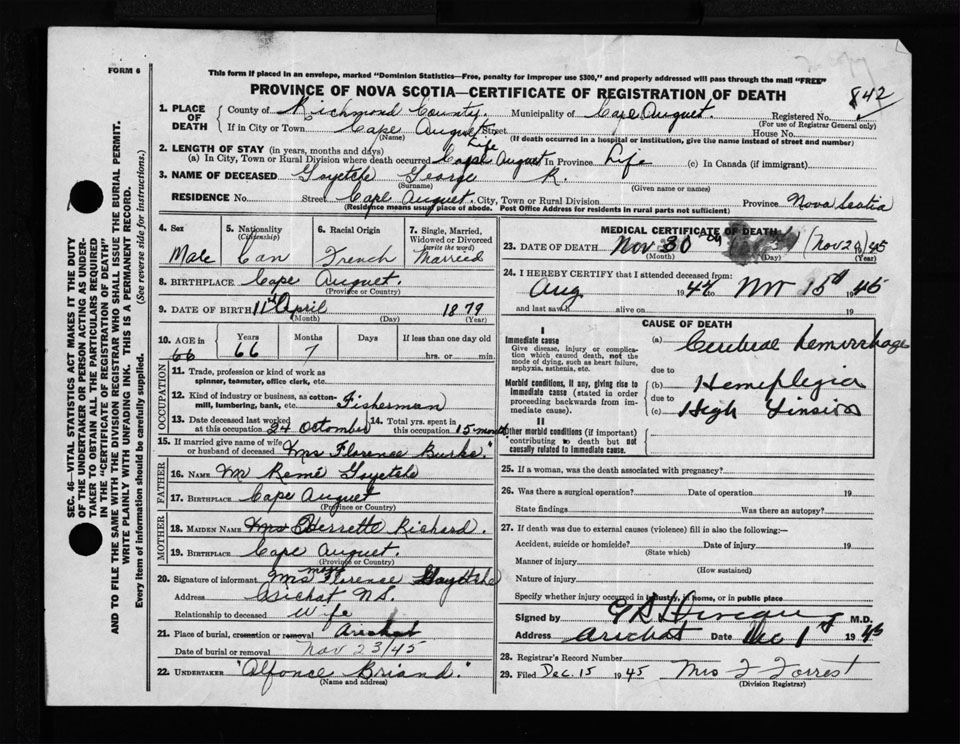 FORM 6
This form if placed in an envelope, marked "Dominion Statistics—Free, penalty for improper use $300," and properly addressed will pass through the mail "FREE"
PROVINCE OF NOVA SCOTIA—CERTIFICATE OF REGISTRATION OF DEATH
842
1. PLACE OF DEATH County of Richmond County. Municipality of Cape Auguet. Registered No.
(For use of Registrar General only)
If in City or Town Cape Auguet Street House No.
(Name) (If death occurred in a hospital or institution, give the name instead of street and number)
2. LENGTH OF STAY (in years, months and days) Life
(a) In City, Town or Rural Division where death occurred Cape Auguet In Province Life (c) In Canada (if immigrant)
3. NAME OF DECEASED Goyetche George R.
(Surname) (Given name or names)
RESIDENCE No. Street Cape Auguet. City, Town or Rural Division Province Nova Scotia
(Residence means usual place of abode. Post Office Address for residents in rural parts not sufficient)
4. Sex 5. Nationality (Citizenship) 6. Racial Origin 7. Single, Married, Widowed or Divorced (write the word)
Male Can French Married
8. BIRTHPLACE Cape Auguet.
(Province or Country)
9. DATE OF BIRTH 11th April 1879
(Month) (Day) (Year)
10. AGE in Years Months Days If less than one day old
66 66 7 hrs. or min.
OCCUPATION
11. Trade, profession or kind of work as spinner, teamster, office clerk, etc.
12. Kind of industry or business, as cotton-mill, lumbering, bank, etc. Fisherman
13. Date deceased last worked at this occupation 24 Octomber 14. Total yrs. spent in this occupation 15 month
15. If married give name of wife or husband of deceased Mrs Florence Burke.
FATHER
16. NAME Mr Remé Goyetche
17. BIRTHPLACE Cape Auguet
(Province or Country)
MOTHER
18. MAIDEN NAME Richard.
19. BIRTHPLACE Cape Auguet.
(Province or Country)
20. Signature of informant Mrs Florence Goyetche
Address Arichat N.S.
Relationship to deceased Wife
21. Place of burial, cremation or removal Arichat
Date of burial or removal Nov 23/45
22. UNDERTAKER "Alfonce Briand."
(Name and address)
MEDICAL CERTIFICATE OF DEATH
23. DATE OF DEATH Nov 30 (Nov 29) 45
(Month) (Day) (Year)
24. I HEREBY CERTIFY that I attended deceased from:
Aug 194 to Nov 15th 1945
and last saw h alive on 19
CAUSE OF DEATH
I
Immediate cause
Give disease, injury or complication which caused death, not the mode of dying, such as heart failure, asphyxia, asthenia, etc.
(a) Cerebral hemorrhage
due to
Morbid conditions, if any, giving rise to immediate cause (stated in order proceeding backwards from immediate cause).
(b) Hemeplegia
due to
(c) High Tension
II
Other morbid conditions (if important) contributing to death but not causally related to immediate cause.
25. If a woman, was the death associated with pregnancy?
26. Was there a surgical operation? Date of operation 19
State findings Was there an autopsy?
27. If death was due to external causes (violence) fill in also the following:—
Accident, suicide or homicide? Date of injury 19
(State which)
Manner of injury
(How sustained)
Nature of injury
Specify whether injury occurred in industry, in home, or in public place
Signed by M.D.
Address Arichat Date Dec 1 1945
28. Registrar's Record Number
29. Filed Dec. 15 1945 Mrs F Forrest
(Division Registrar)
SEC. 46—VITAL STATISTICS ACT MAKES IT THE DUTY
OF THE UNDERTAKER OR PERSON ACTING AS UNDER-
TAKER TO OBTAIN ALL THE PARTICULARS REQUIRED
IN THE "CERTIFICATE OF REGISTRATION OF DEATH"
AND TO FILE THE SAME WITH THE DIVISION REGISTRAR WHO SHALL ISSUE THE BURIAL PERMIT.
WRITE PLAINLY WITH UNFADING INK. THIS IS A PERMANENT RECORD.
Every item of information should be carefully supplied. (See reverse side for instructions.)